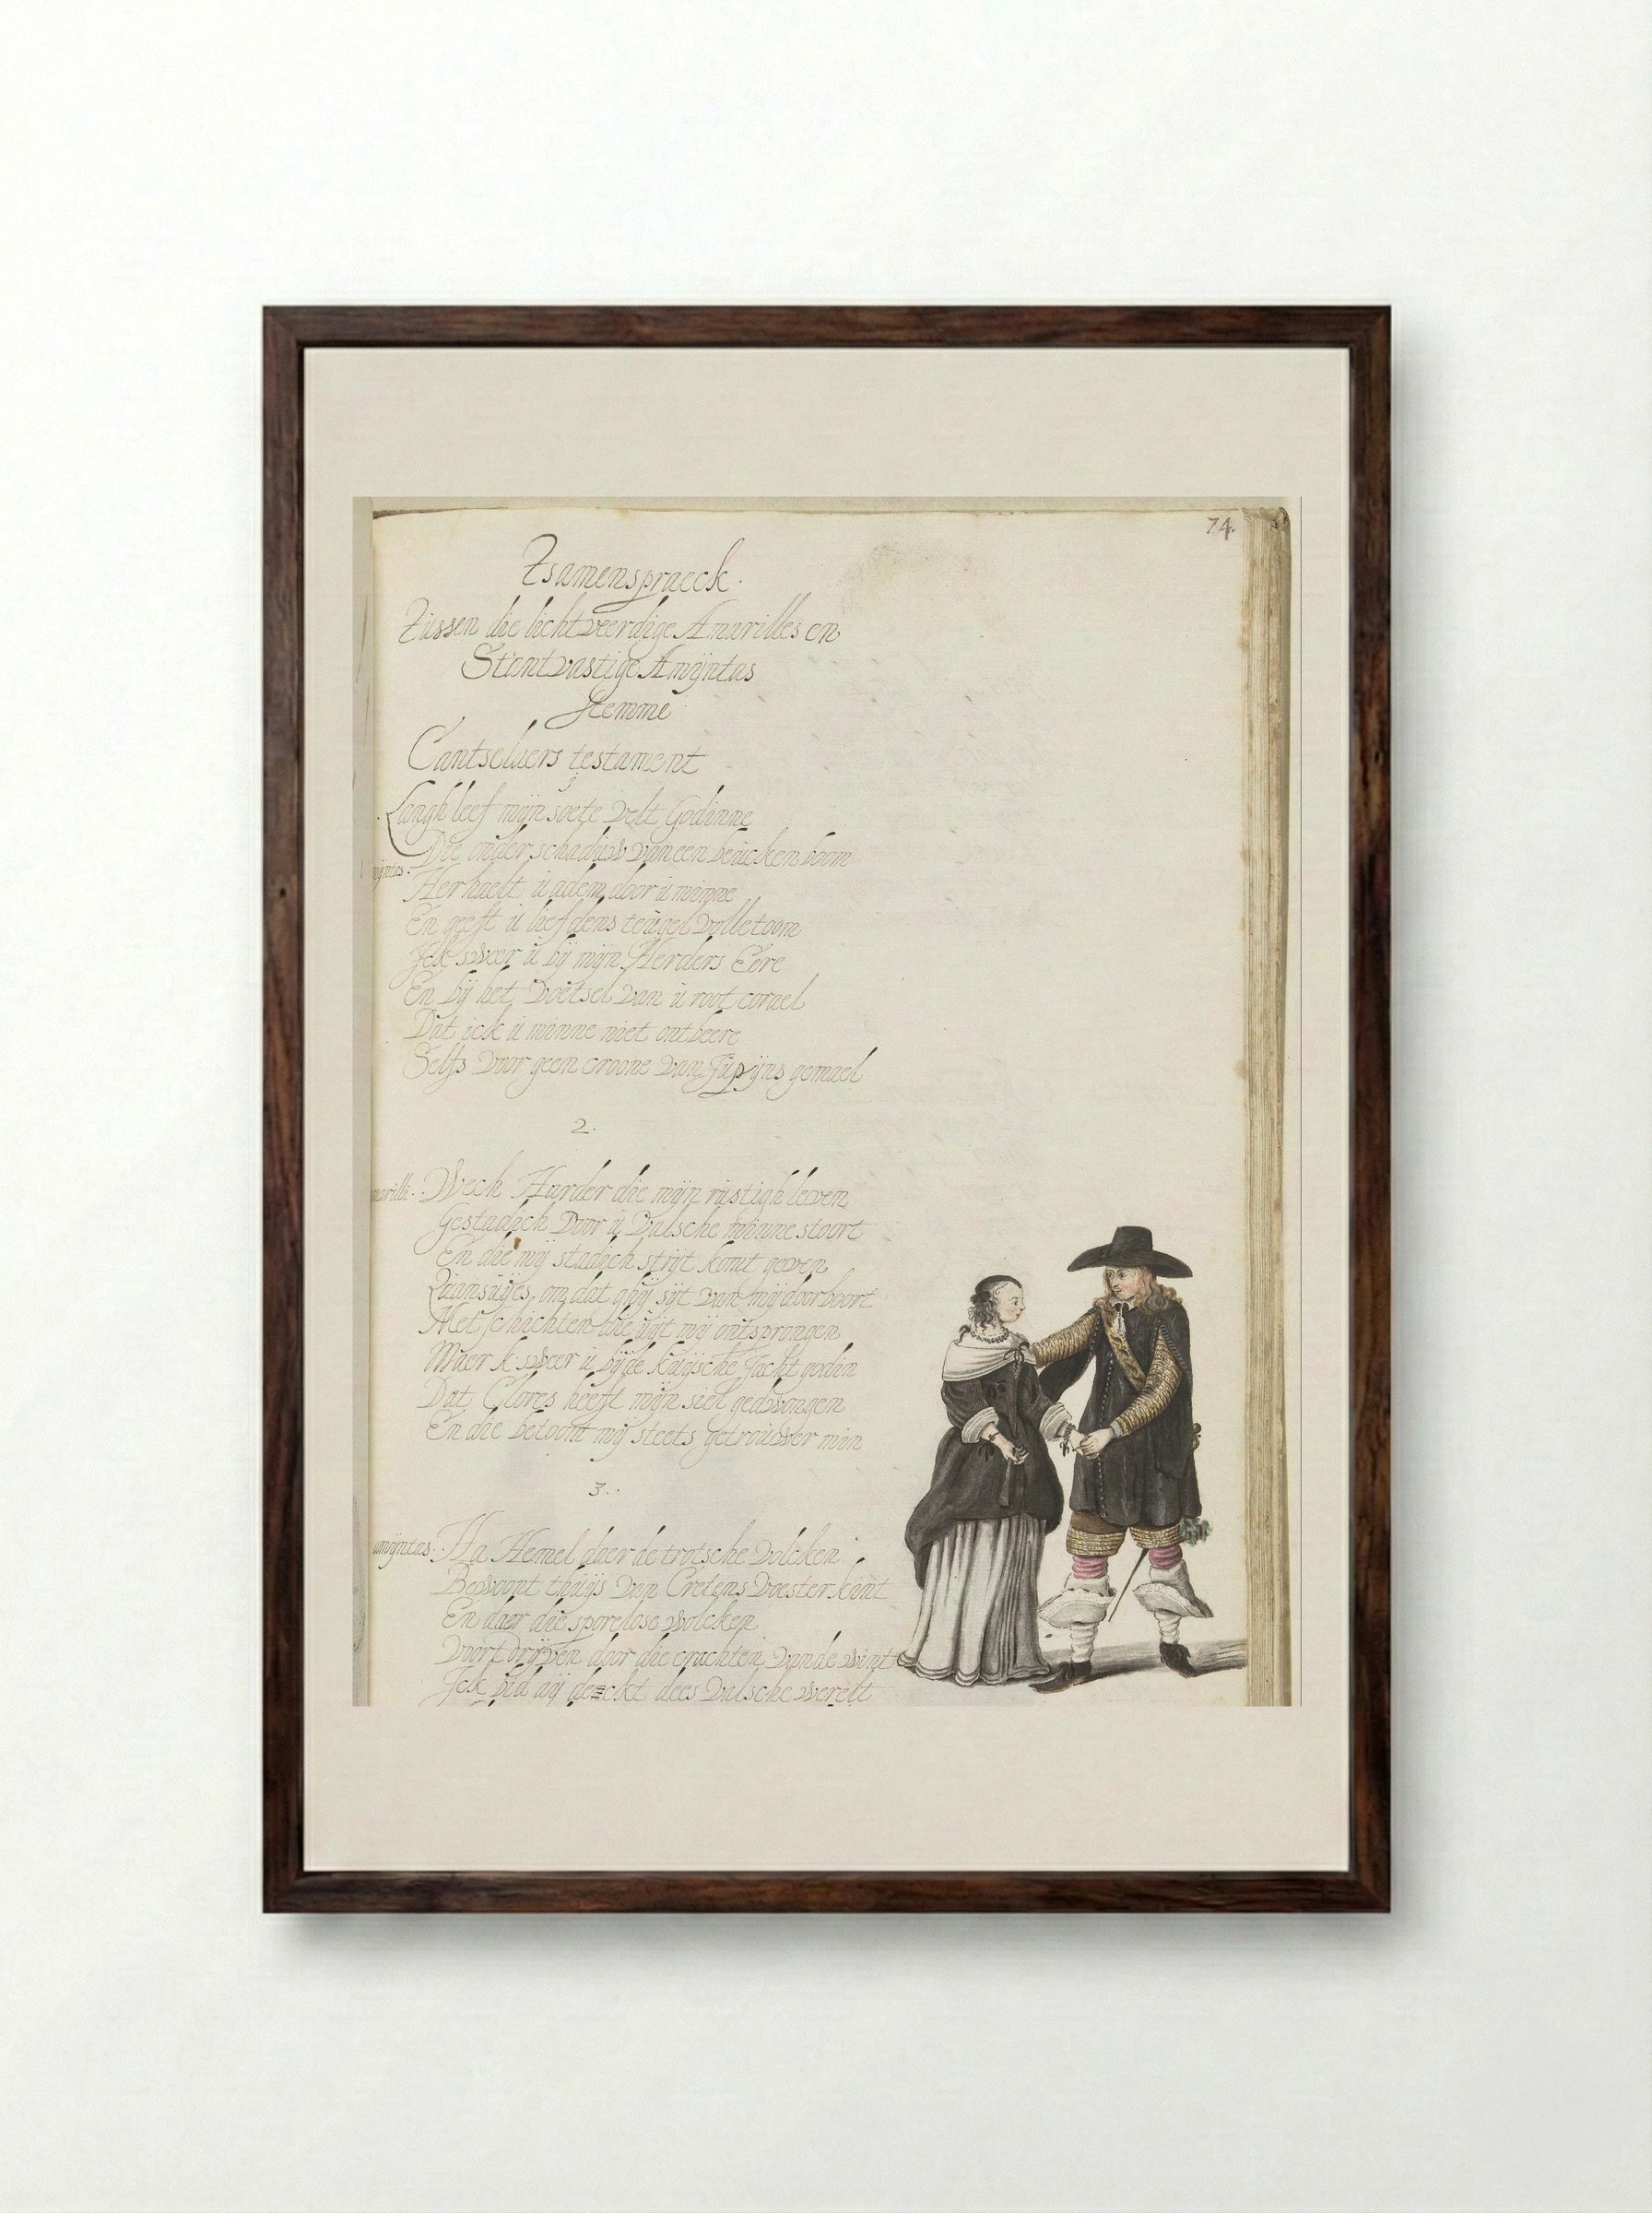 74.
Tsamenspraeck.
Tussen die lichtveerdige Amarilles en
Stantvastige Amÿntas
Stemme
Cantselaers testament
Langh leef mijn soete Velt Godinne
Die onder schaduw van een beucken boom
Herhaelt u adem door u minne
En geeft u liefdens teugel volle toom
Ick sweer u bij mijn Herders Eere
En bij het voetsel van u root corael
Dat ick u minne niet ontbeere
Selfs voor geen croone van Jupijns gemael
2.
Wech Harder die mijn rustigh leven
Gestadich door u valsche minne stoort
En die mij stadich strijt komt geven
om dat ghij sijt van mij doorboort
Met schichten die uijt mij ontsprongen
Maer k sweer u bijde kuijsche Jacht godin
Dat Clores heeft mijn siel gedwongen
En die betoont mij steets getrouwer min
3.
amÿntas. Ha Hemel daer de trotsche volcken
Bewoont thuijs van Cretens voesterkint
En daer die sporelose wolcken
Voort drijven door die crachten vande wint
Ick bid dees valsche werelt